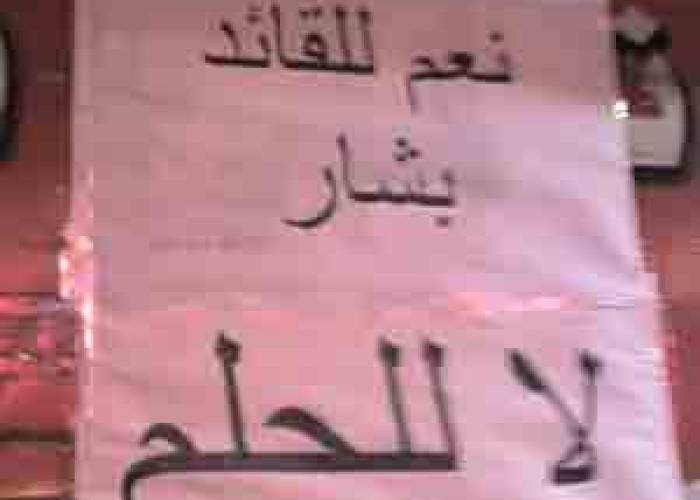 نعم للقائد
بشار
لا للحلح